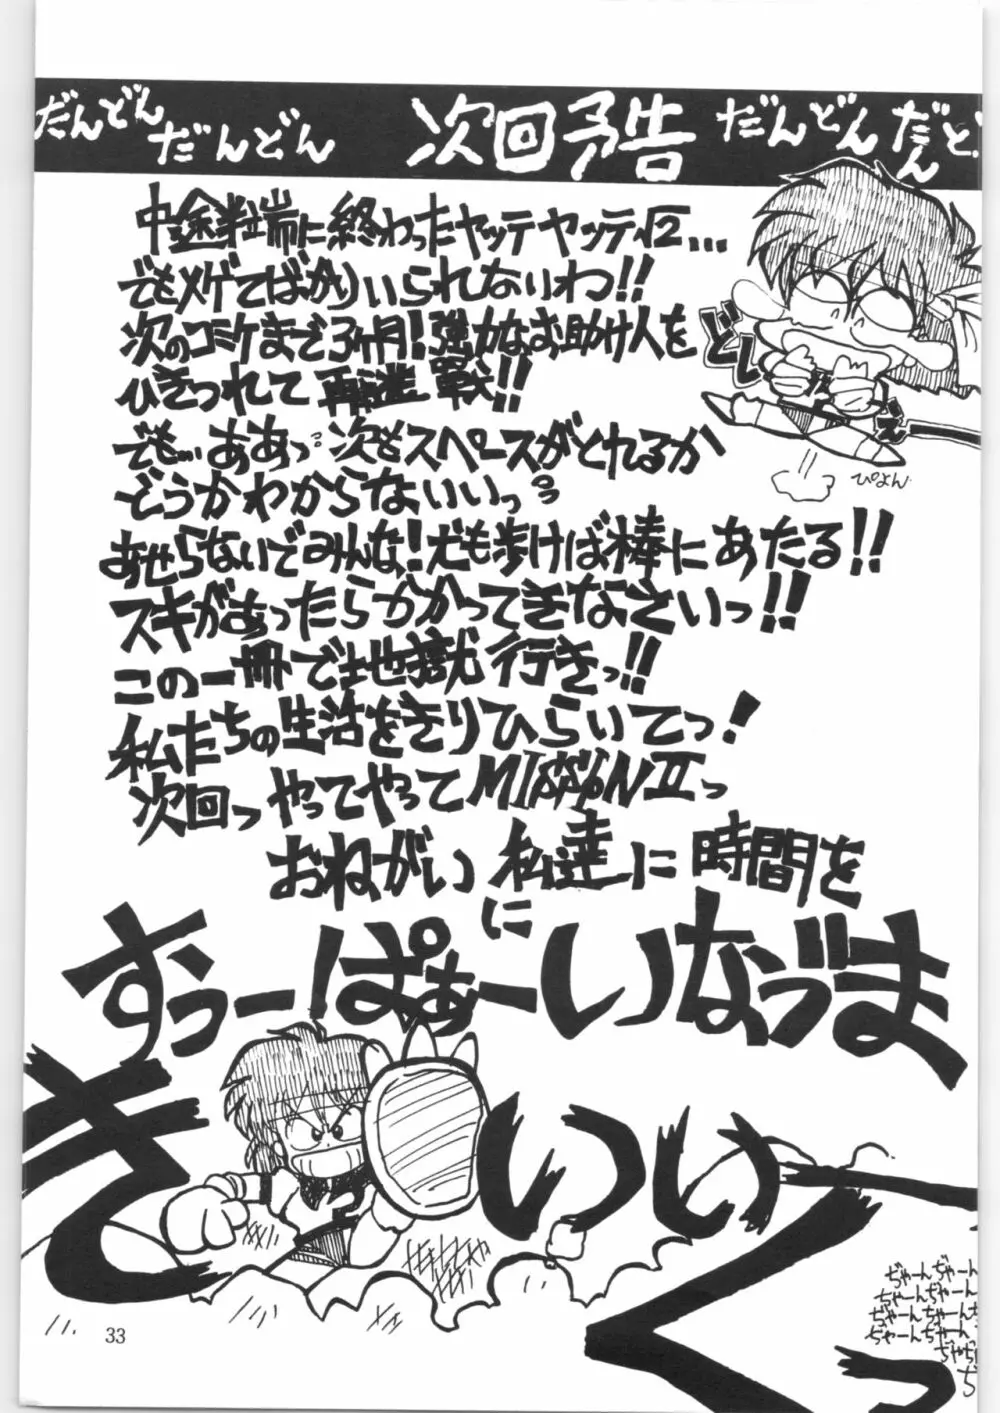 だんどん だんどん 次回予告 だんどん だん ど
中途半端に終わったヤッテヤッテ√2...
でもメゲてばかりいられないわ!!
次のコミケまで3ヶ月!強力なお助け人を
ひきつれて再進戦!!
でも...ああっ 次もスペースがとれるか
どうかわからないいっ
あせらないでみんな!犬も歩けば棒にあたる!!
スキがあったらかかってきなさいっ!!
この一冊で地獄行きっ!!
私たちの生活をきりひらいてっ!
次回っやってやってMISSION IIっ
おねがい 私達に時間を
に
すぅー!ぱぁーいなづま
きいいいくっ
どしぇえ
ぴよん
ぢゃーんぢゃーん
ぢゃーんぢゃーん
ぢゃーんぢゃーん
ぢゃーんぢゃーん
ぢゃぢ
ぢ
33